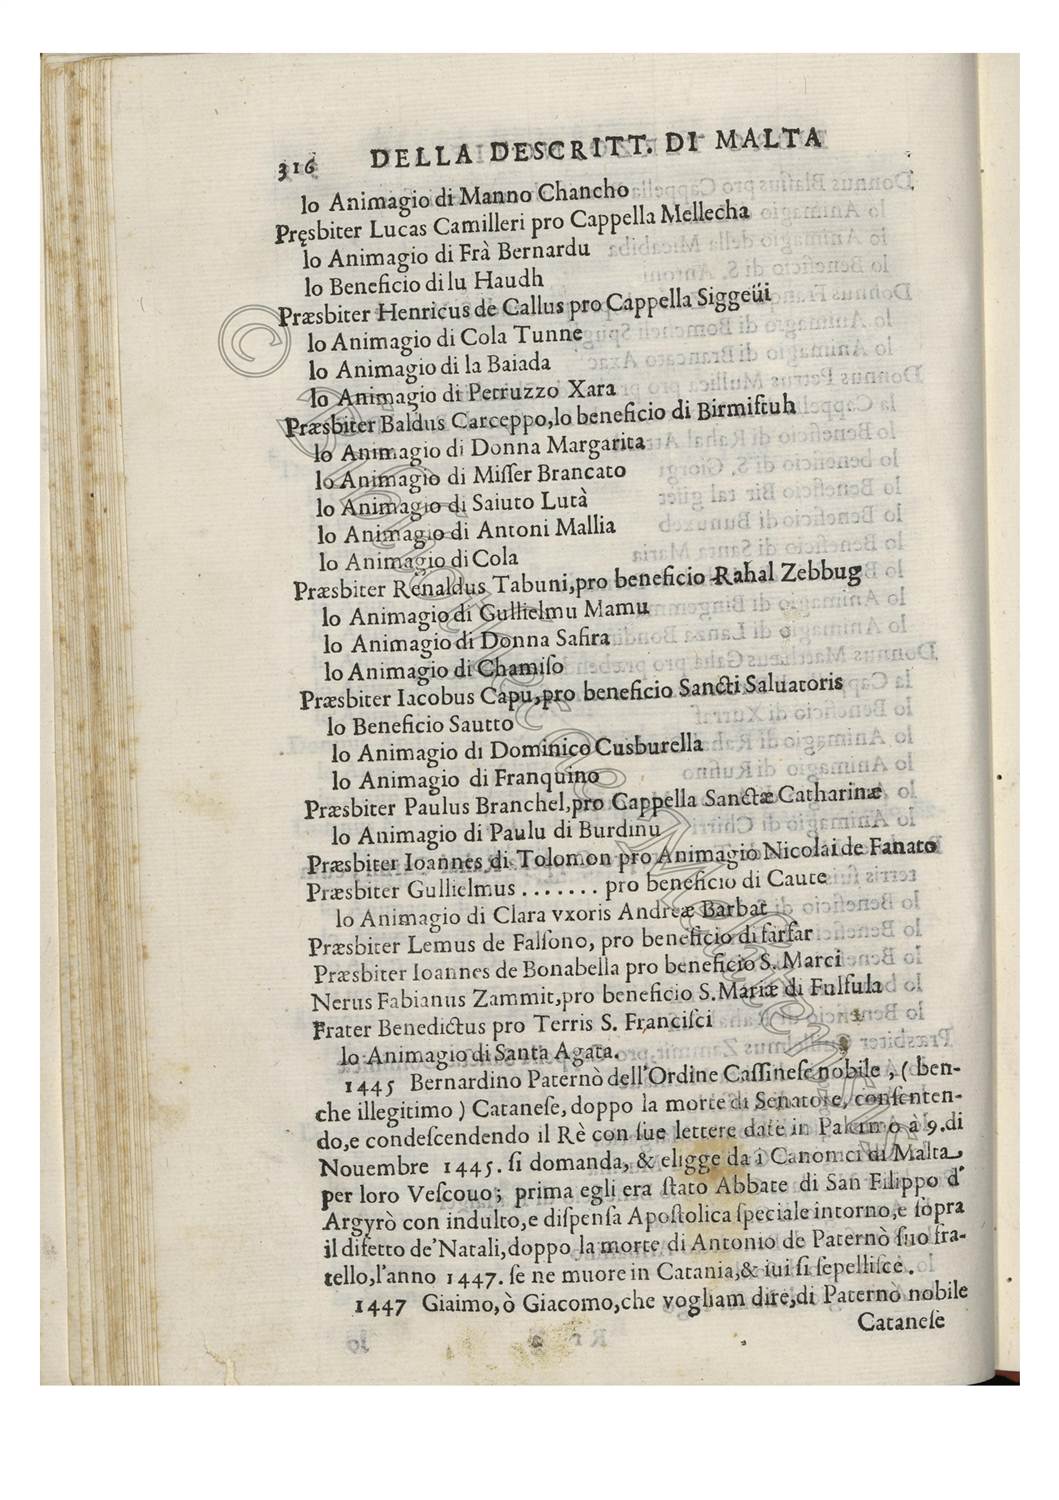 316 DELLA DESCRITT. DI MALTA
lo Animagio di Manno Chancho
Pręsbiter Lucas Camilleri pro Cappella Mellecha
lo Animagio di Frà Bernardu
lo Beneficio di lu Haudh
Præsbiter Henricus de Callus pro Cappella Siggeüi
lo Animagio di Cola Tunne
lo Animagio di la Baiada
lo Animagio di Petruzzo Xara
Præsbiter Baldus Carceppo,lo beneficio di Birmiſtuh
lo Animagio di Donna Margarita
lo Animagio di Miſſer Brancato
lo Animagio di Saiuto Lutà
lo Animagio di Antoni Mallia
lo Animagio di Cola
Præsbiter Renaldus Tabuni,pro beneficio Rahal Zebbug
lo Animagio di Gullielmu Mamu
lo Animagio di Donna Safira
lo Animagio di Chamiſo
Præsbiter Iacobus Capu,pro beneficio Sancti Saluatoris
lo Beneficio Sautto
lo Animagio di Dominico Cusburella
lo Animagio di Franquino
Præsbiter Paulus Branchel,pro Cappella Sanctæ Catharinæ
lo Animagio di Paulu di Burdinu
Præsbiter Ioannes di Tolomon pro Animagio Nicolai de Fanato
Præsbiter Gullielmus ....... pro beneficio di Caute
lo Animagio di Clara vxoris Andreæ Barbat
Præsbiter Lemus de Falſono, pro beneficio di farfar
Præsbiter Ioannes de Bonabella pro beneficio S. Marci
Nerus Fabianus Zammit,pro beneficio S.Mariæ di Fulfula
Frater Benedictus pro Terris S. Franciſci
lo Animagio di Santa Agata.
1445 Bernardino Paternò dell'Ordine Caſſineſe nobile , ( ben-
che illegitimo ) Cataneſe, doppo la morte di Senatore, conſenten-
do,e condeſcendendo il Rè con ſue lettere date in Palermo à 9.di
Nouembre 1445. ſi domanda, & eligge da i Canonici di Malta
per loro Veſcouo; prima egli era ſtato Abbate di San Filippo d'
Argyrò con indulto,e diſpenſa Apoſtolica ſpeciale intorno,e ſopra
il difetto de'Natali,doppo la morte di Antonio de Paternò ſuo fra-
tello,l'anno 1447. ſe ne muore in Catania,& iui ſi ſepelliſce.
1447 Giaimo, ò Giacomo,che vogliam dire,di Paternò nobile
Cataneſe